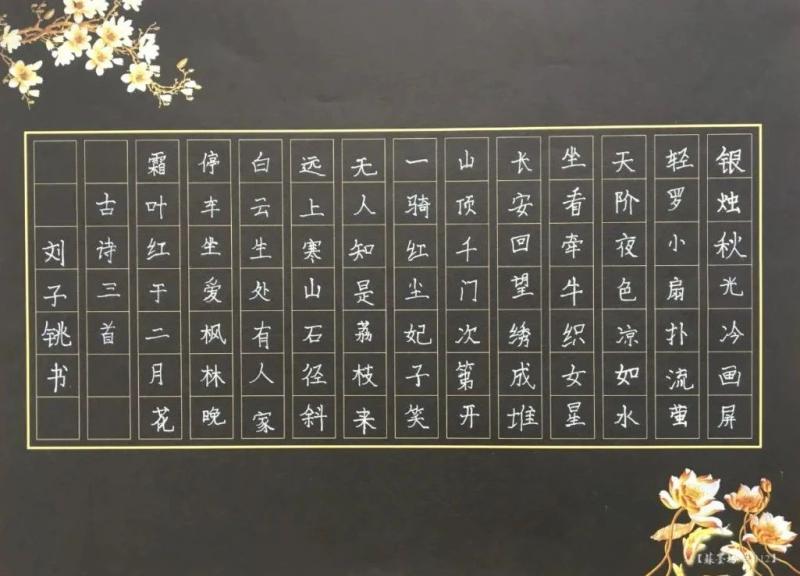 银烛秋光冷画屏
轻罗小扇扑流萤
天阶夜色凉如水
坐看牵牛织女星
长安回望绣成堆
山顶千门次第开
一骑红尘妃子笑
无人知是荔枝来
远上寒山石径斜
白云生处有人家
停车坐爱枫林晚
霜叶红于二月花
古诗三首
刘子铫书